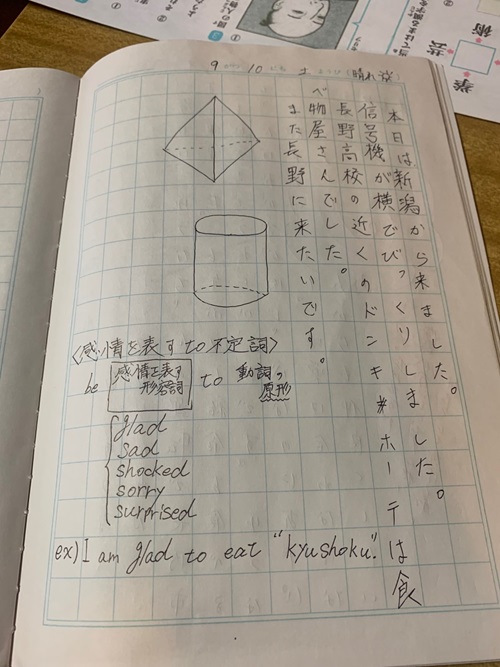 9がつ10にち土ようび(晴れ
本日は新潟から来ました。
信号機が横でびっくりしました。
長野高校の近くのドンキホーテは食
べ物屋さんでした。
また長野に来たいです。
〈感情を表すto不定詞〉
be 感情を表す形容詞 to 動詞の原形
glad
sad
shocked
sorry
surprised
ex) I am glad to eat "kyushoku".
術
芸